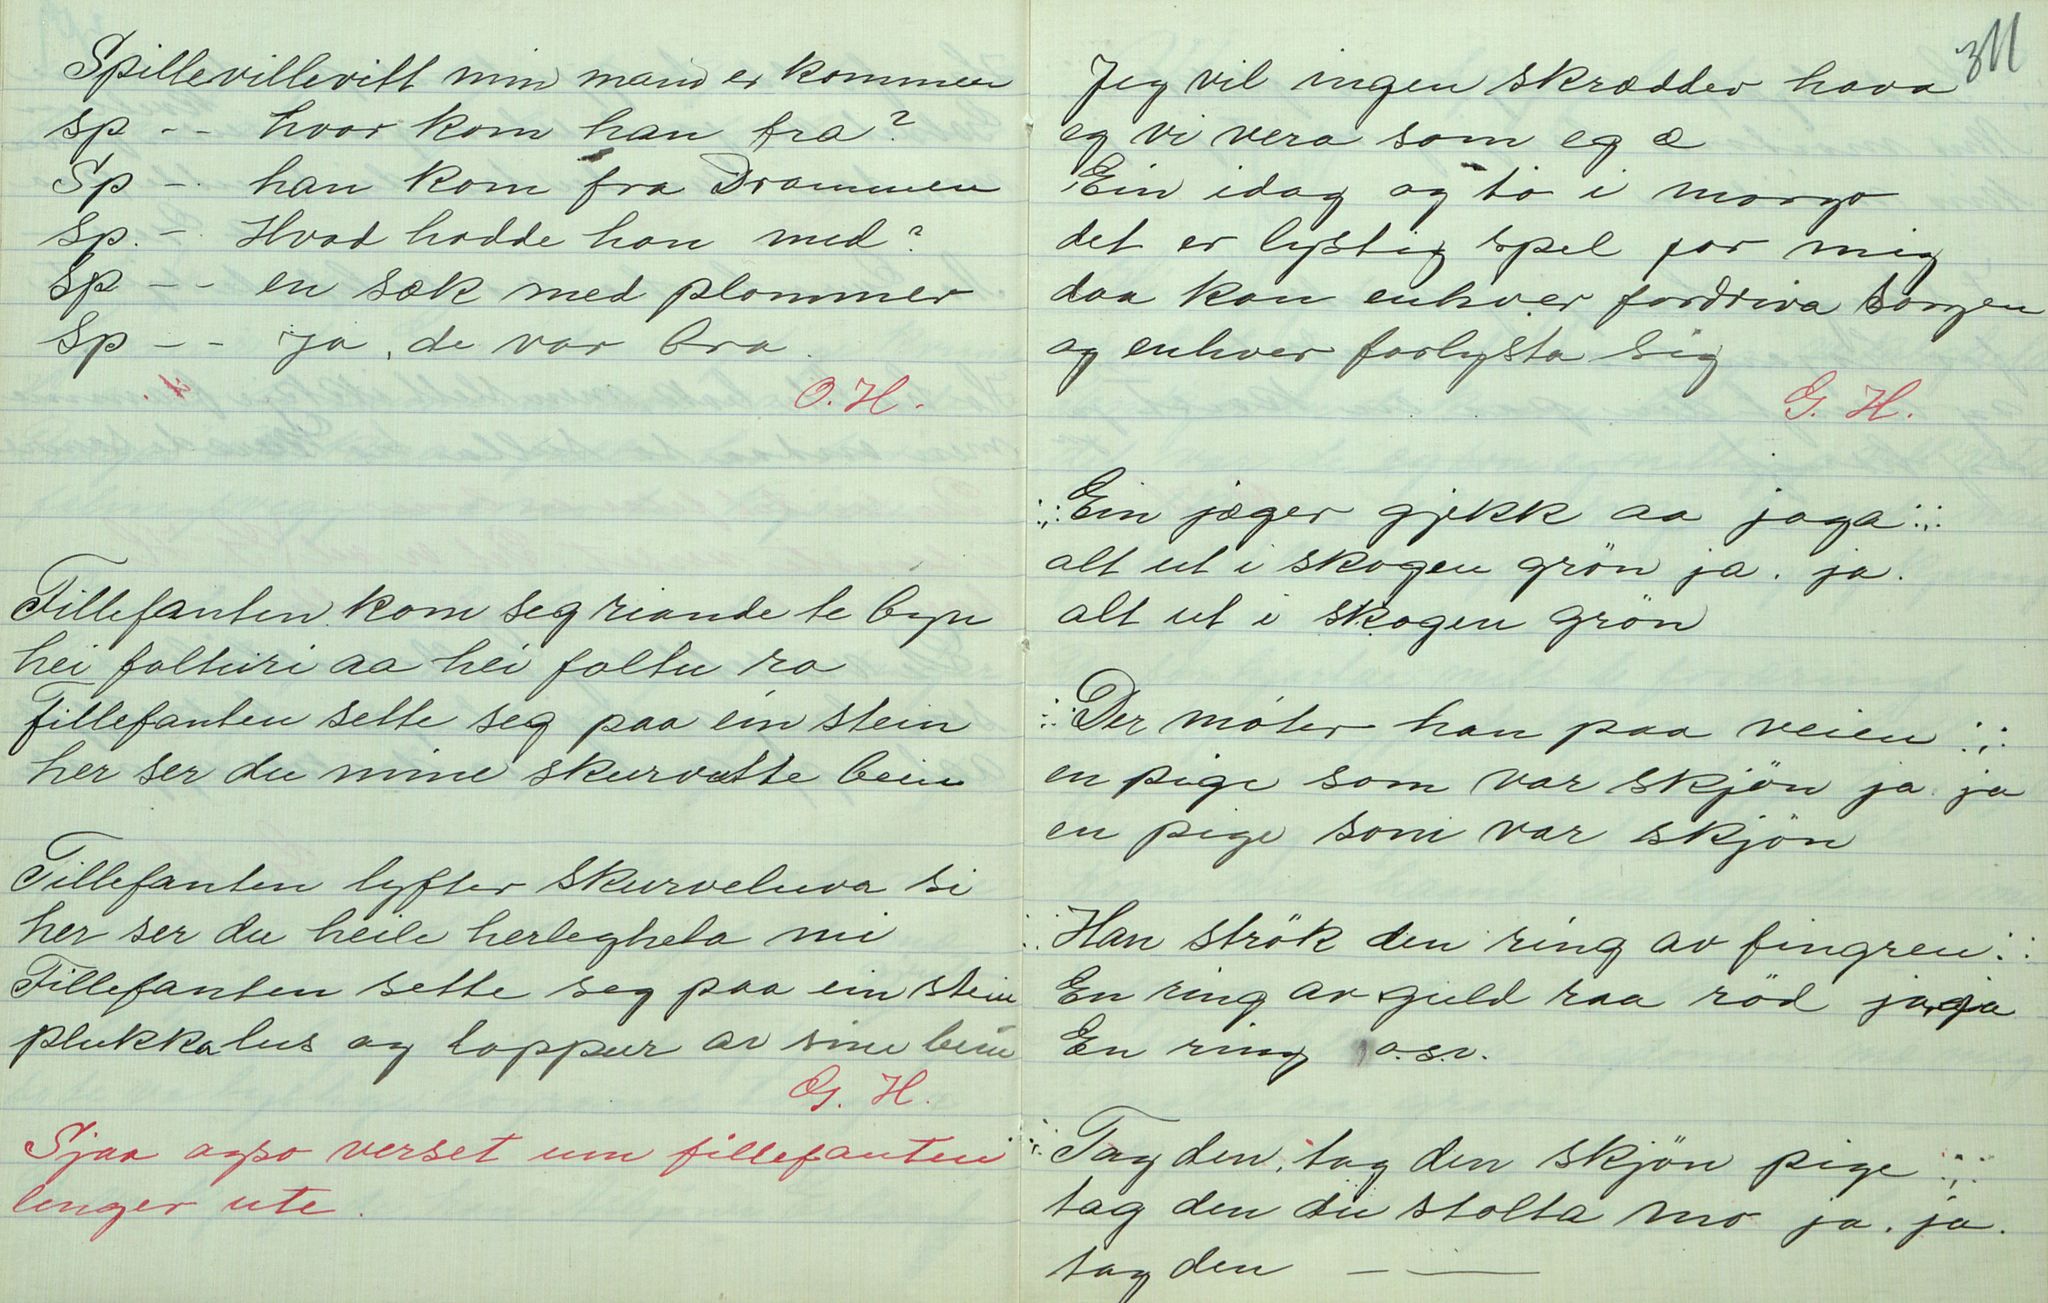 Spillevillevitt min mand er kommen
Sp - - hvor kom han fra?
Sp - - han kom fra Drammen
Sp. - Hvad hadde han med?
Sp - - en sæk med plommer
Sp - - Ja, de var bra.
O. H.
Fillefanten kom seg riande te byn
hei falturi aa hei faltu ra
Fillefanten sette seg paa ein stein
her ser du mine skurvutte bein
Fillefanten lyfter skurveluva si
her ser du heile herlegheta mi
Fillefanten sette seg paa ein stein
plukka lus og loppur av sine bein
G. H.
Sjaa ogso verset um fillefanten
lenger ute.
311
Jeg vil ingen skrædder hava
eg vi vera som eg æ
Ein idag og to i morgo
det er lystig spel for mig
daa kan enhver fordriva sorgen
og enhver forlysta sig
G. H.
:,: Ein jæger gjekk aa jaga :,:
alt ut i skogen grön ja. ja.
alt ut i skogen grön
:,: Der möter han paa veien :,:
en pige som var skjön ja ja
en pige som var skjön
:,: Han strök den ring av fingren :,:
En ring av guld raa röd ja, ja
En ring o.s.v.
:,: Tag den, tag den skjön pige :,:
tag den du stolta mö ja. ja.
tag den — —